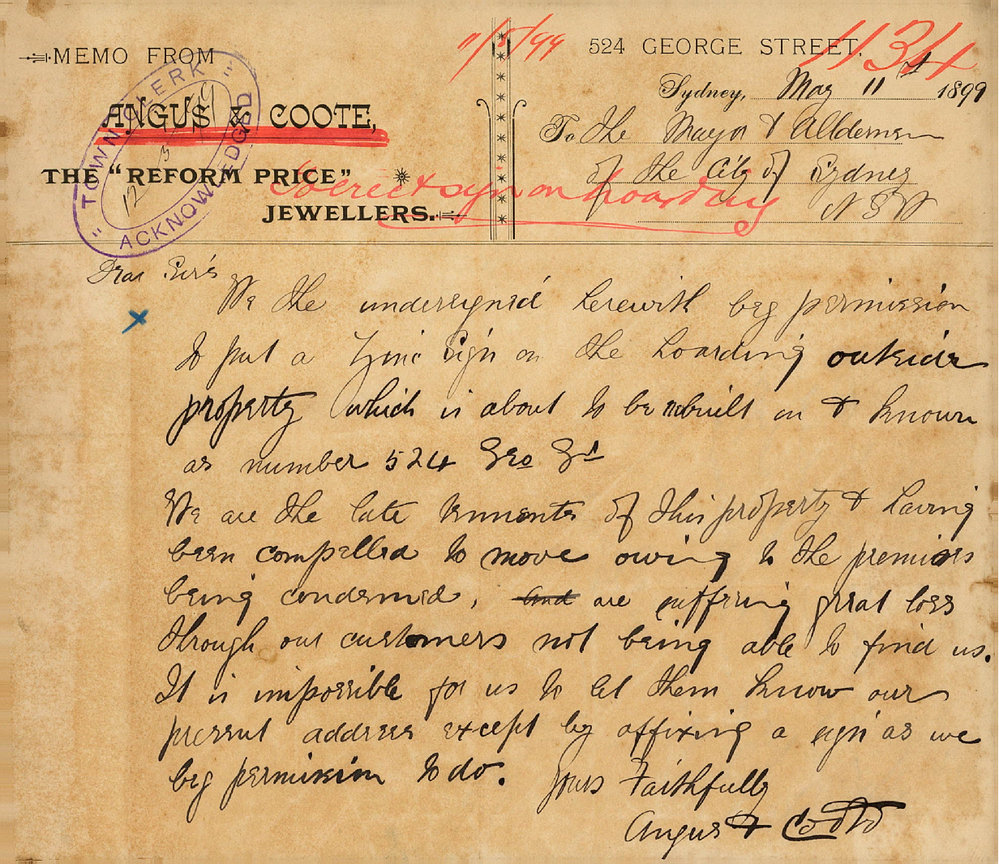 MEMO FROM
ANGUS & COOTE,
THE "REFORM PRICE"
JEWELLERS.
TOWN CLERK
ACKNOWLEDGED
11/5/99
1134
To erect sign on hoarding
524 GEORGE STREET.
Sydney, May 11th 1899
To The Mayor & Alldermen
of the City of Sydney
N S W
Dear Sir's
We the undersigned herewith beg permission
to put a Zinc Sign on the hoarding outside
property which is about to be rebuilt on & known
as number 524 Geo St
We are the late tennents of this property & having
been compelled to move owing to the premises
being condemned, and are suffering great loss
through our customers not being able to find us.
It is impossible for us to let them know our
present address except by affixing a sign as we
beg permission to do.
Yours Faithfully
Angus & Coote